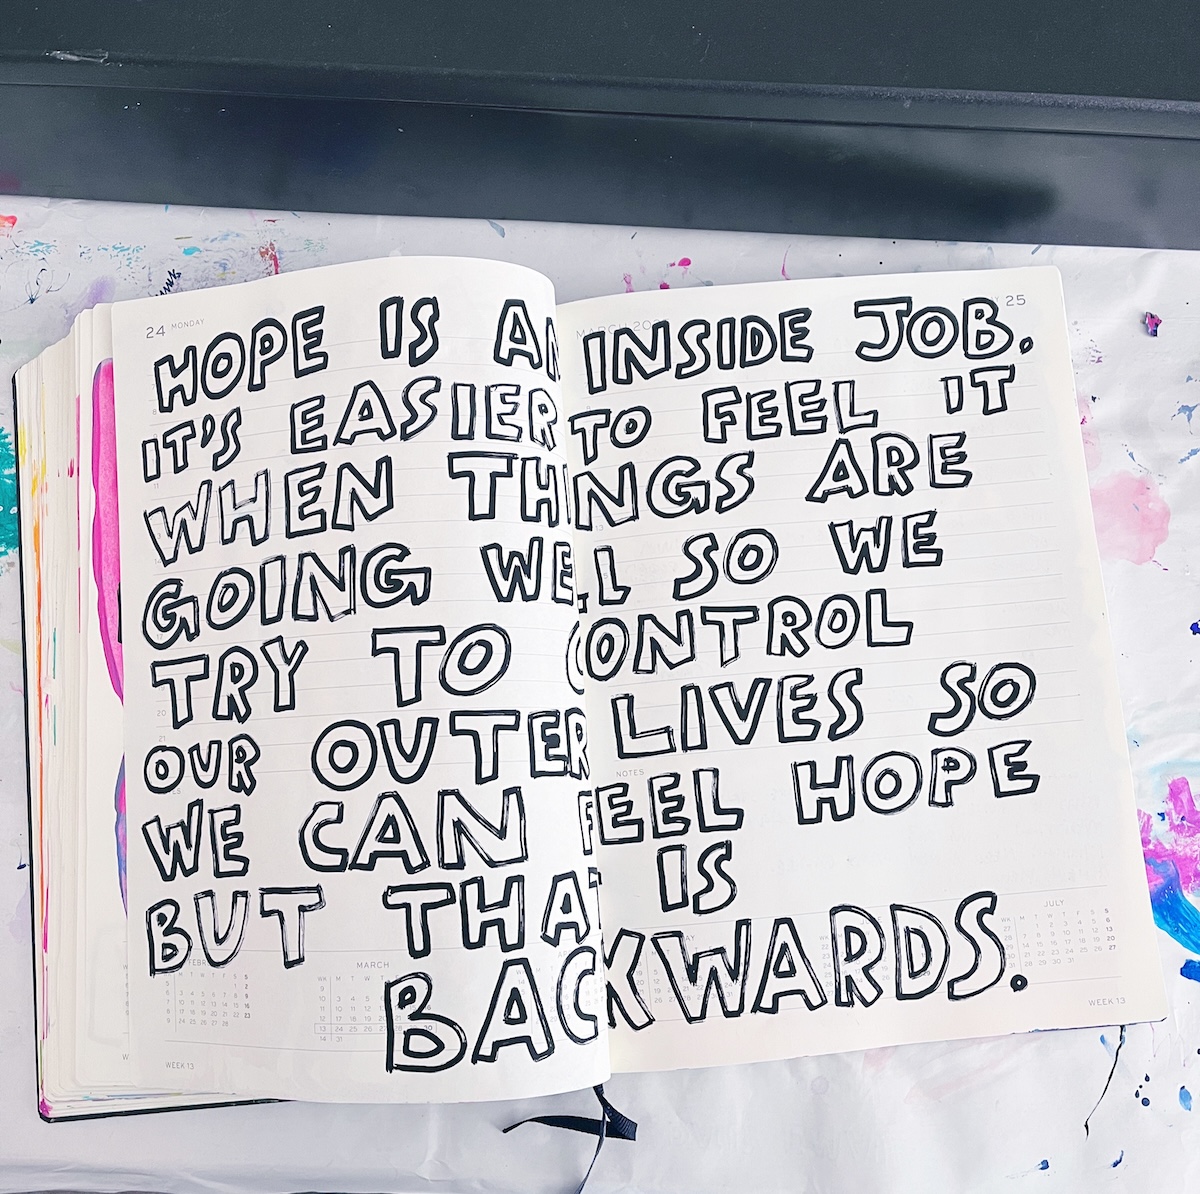 24 MONDAY
MARCH 20
25
HOPE IS AN INSIDE JOB.
IT'S EASIER TO FEEL IT
WHEN THINGS ARE
GOING WELL SO WE
TRY TO CONTROL
OUR OUTER LIVES SO
WE CAN FEEL HOPE
BUT THAT IS
BACKWARDS.
NOTES
MARCH
JULY
WEEK 13
WEEK 13